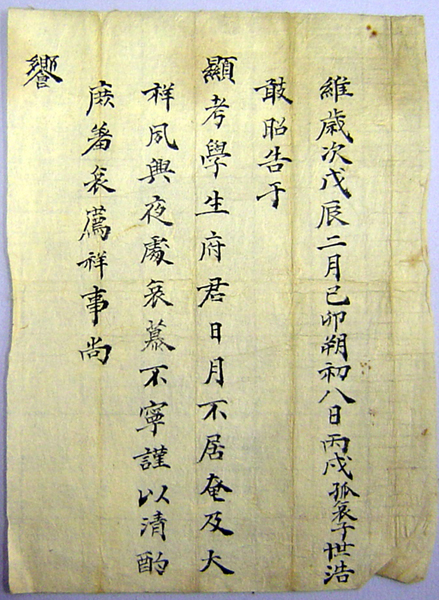 維歲次戊辰二月己卯朔初八日丙戌孤哀子世浩
敢昭告于
顯考學生府君日月不居奄及大
祥夙興夜處哀慕不寧謹以清酌
庶羞哀薦祥事尚
饗